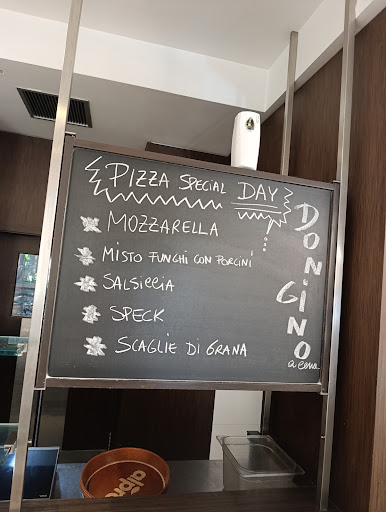 PIZZA SPECIAL DAY
MOZZARELLA
MISTO FUNGHI CON PORCINI
SALSICCIA
SPECK
SCAGLIE DI GRANA
DON GINO
a cena